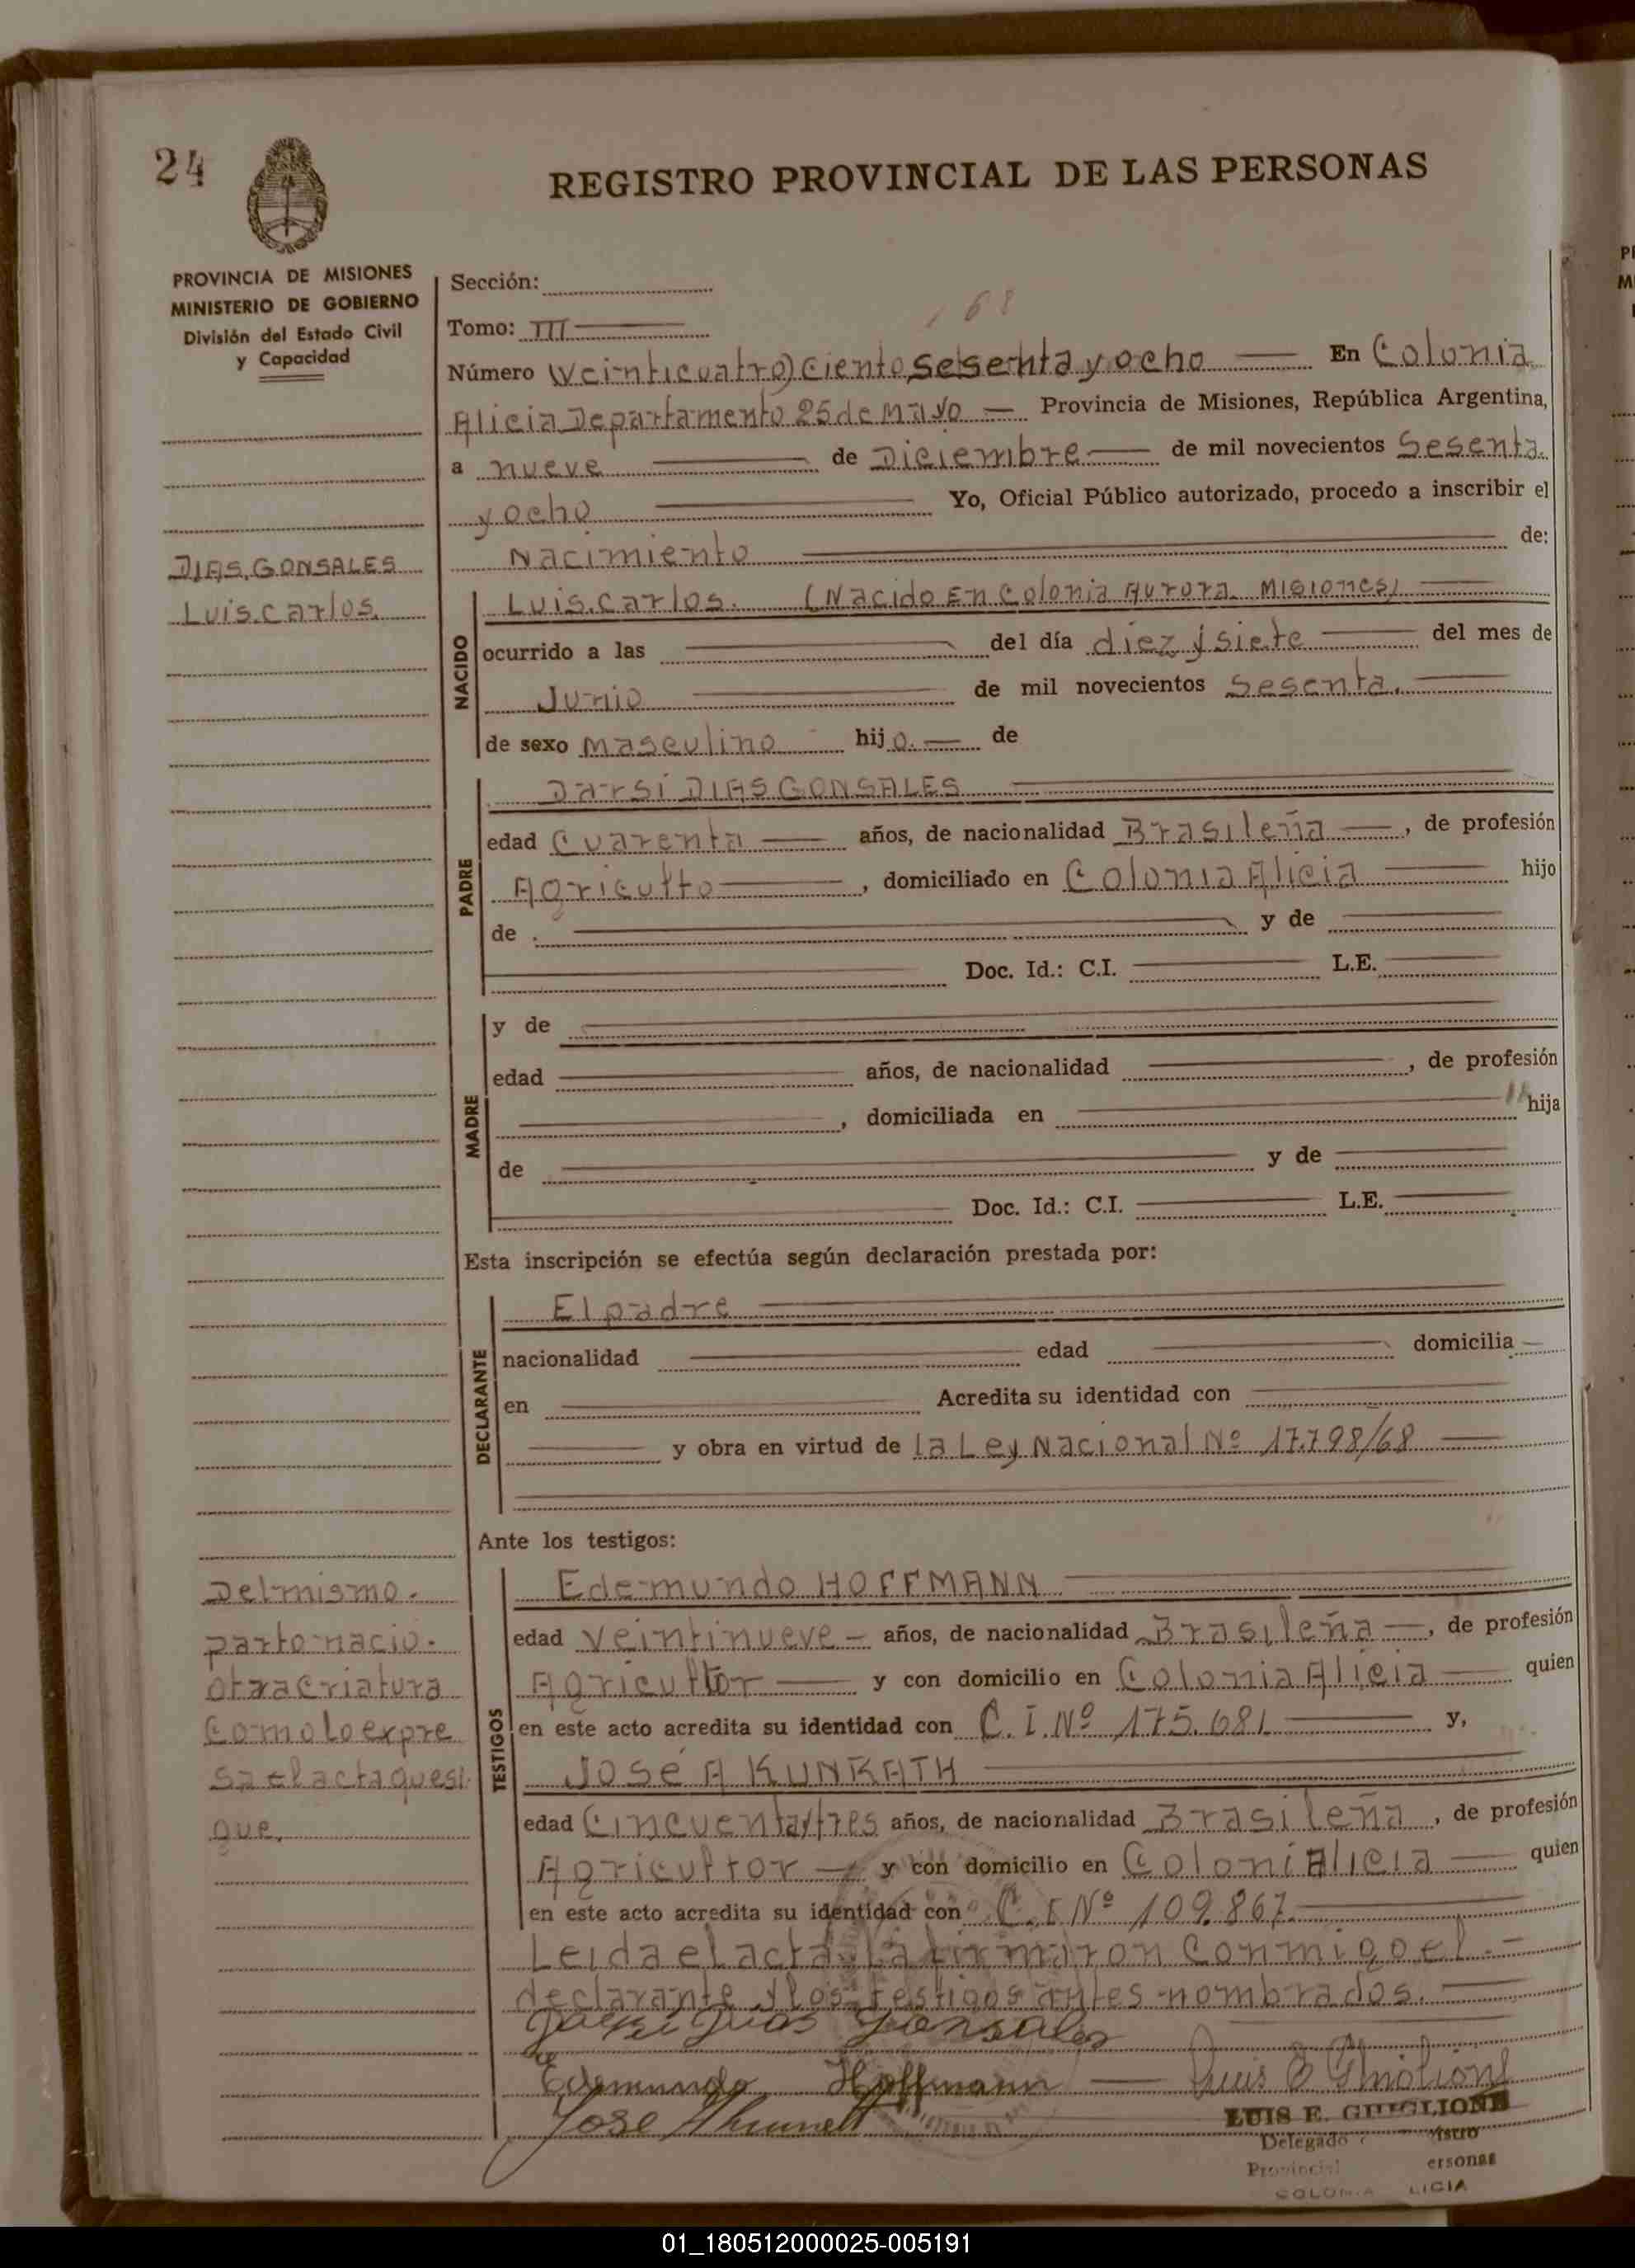 24
REGISTRO PROVINCIAL DE LAS PERSONAS
PROVINCIA DE MISIONES
MINISTERIO DE GOBIERNO
División del Estado Civil
y Capacidad
Sección:
168
Tomo: III
Número (Veinticuatro) Ciento sesenta y ocho En Colonia
Alicia Departamento 25 de Mayo Provincia de Misiones, República Argentina,
a nueve de Diciembre de mil novecientos Sesenta
y ocho Yo, Oficial Público autorizado, procedo a inscribir el
Nacimiento de:
DIAS GONSALES
Luis.Carlos.
NACIDO
Luis.Carlos. (Nacido En Colonia Aurora. Misiones)
ocurrido a las del día diez y siete del mes de
Junio de mil novecientos Sesenta.
de sexo Masculino hijo. de
PADRE
Darsi DIAS GONSALES
edad Cuarenta años, de nacionalidad Brasileña, de profesión
Agricutto, domiciliado en Colonia Alicia hijo
de y de
Doc. Id.: C.I. L.E.
MADRE
y de
edad años, de nacionalidad , de profesión
, domiciliada en hija
de y de
Doc. Id.: C.I. L.E.
Esta inscripción se efectúa según declaración prestada por:
DECLARANTE
El padre
nacionalidad edad domicilia
en Acredita su identidad con
y obra en virtud de la Ley Nacional Nº 17.798/68
Ante los testigos:
Del mismo.
parto nacio.
otra criatura
Como lo expre
sa el acta que si.
gue.
TESTIGOS
Edemundo HOFFMANN
edad Veintinueve años, de nacionalidad Brasileña, de profesión
Agricultor y con domicilio en Colonia Alicia quien
en este acto acredita su identidad con C.I.Nº 175.681 y,
José A KUNKATH
edad Cincuenta y tres años, de nacionalidad Brasileña, de profesión
Agricultor y con domicilio en Coloni Alicia quien
en este acto acredita su identidad con C.I Nº 109.867.
Leida el acta la firmaron Conmigo el.
declarante y los testigos antes nombrados.
Dias Gonsales
Edemundo Hoffmann Luis E Ghiglione
Jose
LUIS E. GHIGLIONE
Delegado
Provincial ersonas
COLONIA LICIA
01_180512000025-005191